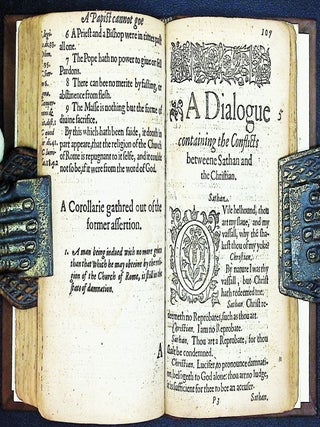 A Papist cannot goe
6 A Priest and a Bishop were in times past
all one.
7 The Pope hath no power to giue or sell
Pardons.
8 There can bee no merite by fasting, or
abstinence from flesh.
9 The Masse is nothing but the forme of
diuine sacrifice.
By this which hath been saide, it doth in
part appeare, that the religion of the Church
of Rome is repugnant to it selfe, and it could
not so be, if it were from the word of God.
A Corollarie gathred out of the
former assertion.
1. A man being indued with no more grace
than that which he may obteine by the reli-
gion of the Church of Rome, is still in the
state of damnation.
A
107
A Dialogue
containing the Conflicts
betweene Sathan and
the Christian.
Sathan.
O Vile helhound, thou
art my slaue, and my
vassall, why thē sha-
kest thou off my yoke?
Christian.
By nature I was thy
vassall, but Christ
hath redeemed me.
Sathan. Christ re-
deemeth no Reprobates, such as thou art.
Christian. I am no Reprobate.
Sathan. Thou art a Reprobate, for thou
shalt be condemned.
Christian. Lucifer, to pronounce damnati-
on, belōgeth to God alone: thou art no iudge,
it is sufficient for thee to bee an accuser.
P3 Sathan.